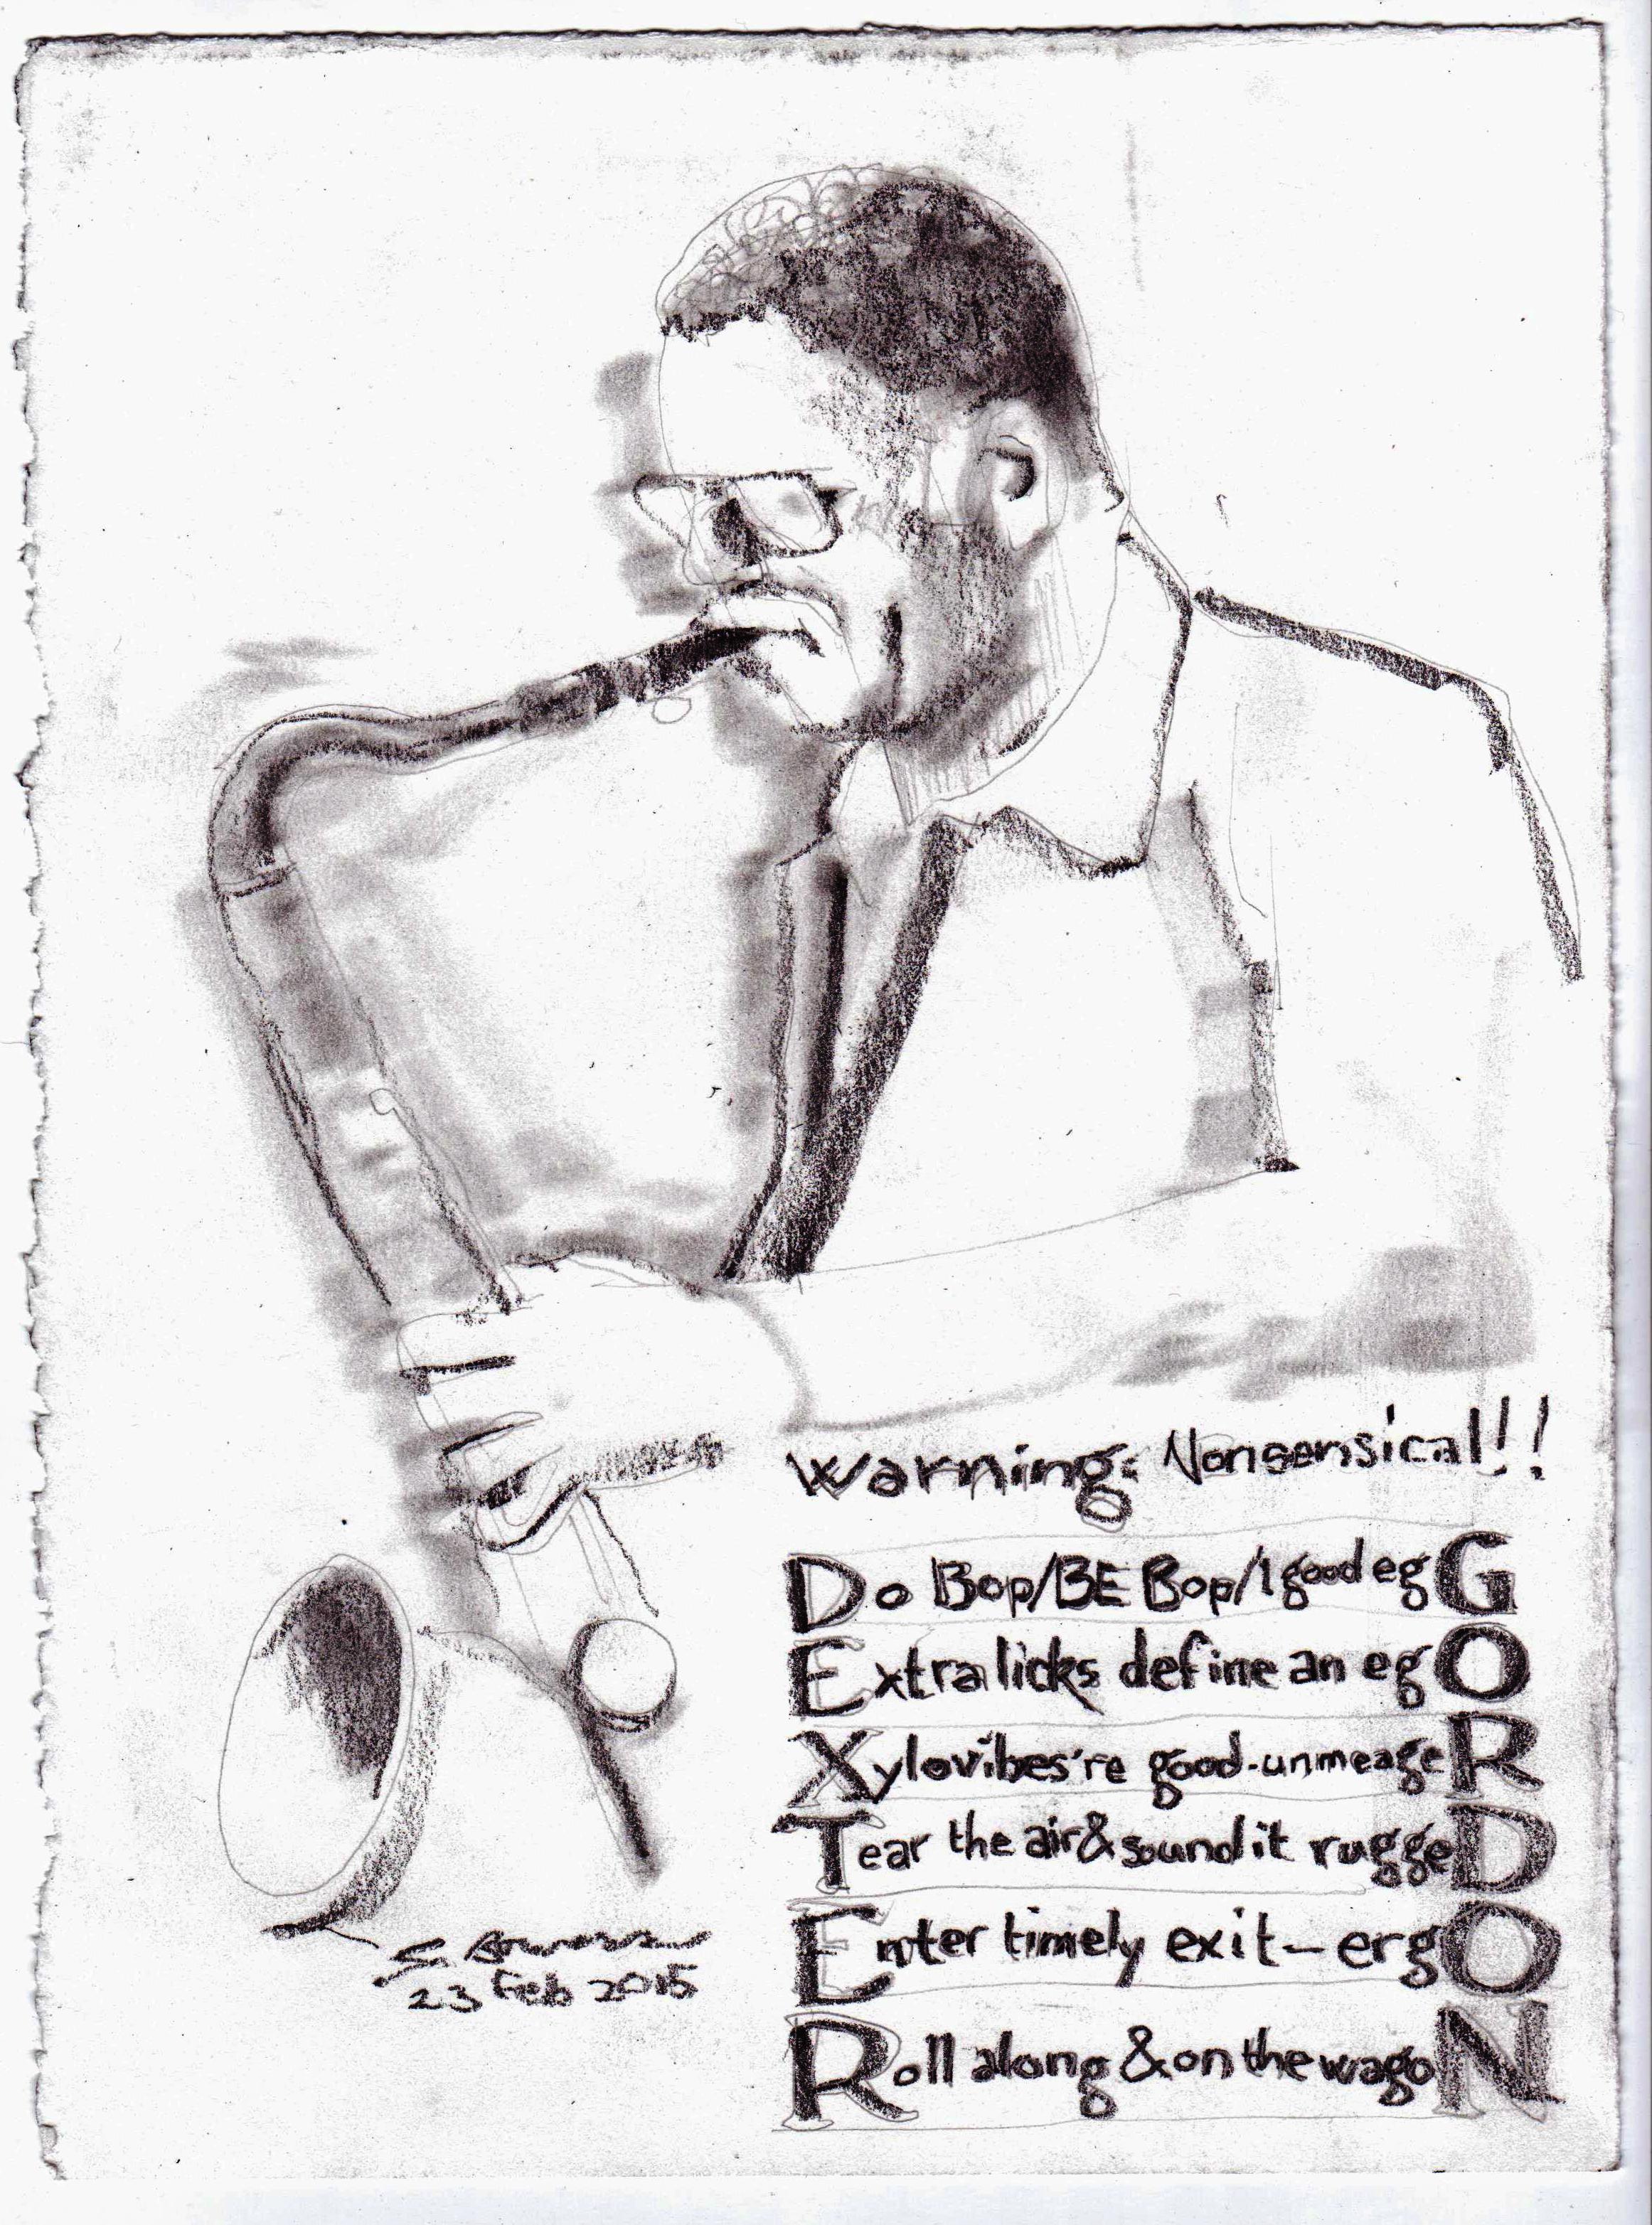 Warning: Nonsensical!!
Do Bop/BE Bop/1 good egG
Extra licks define an egO
Xylovibes're good-unmeageR
Tear the air & sound it ruggeD
Enter timely exit - ergO
Roll along & on the wagoN
S.
23 Feb 2015